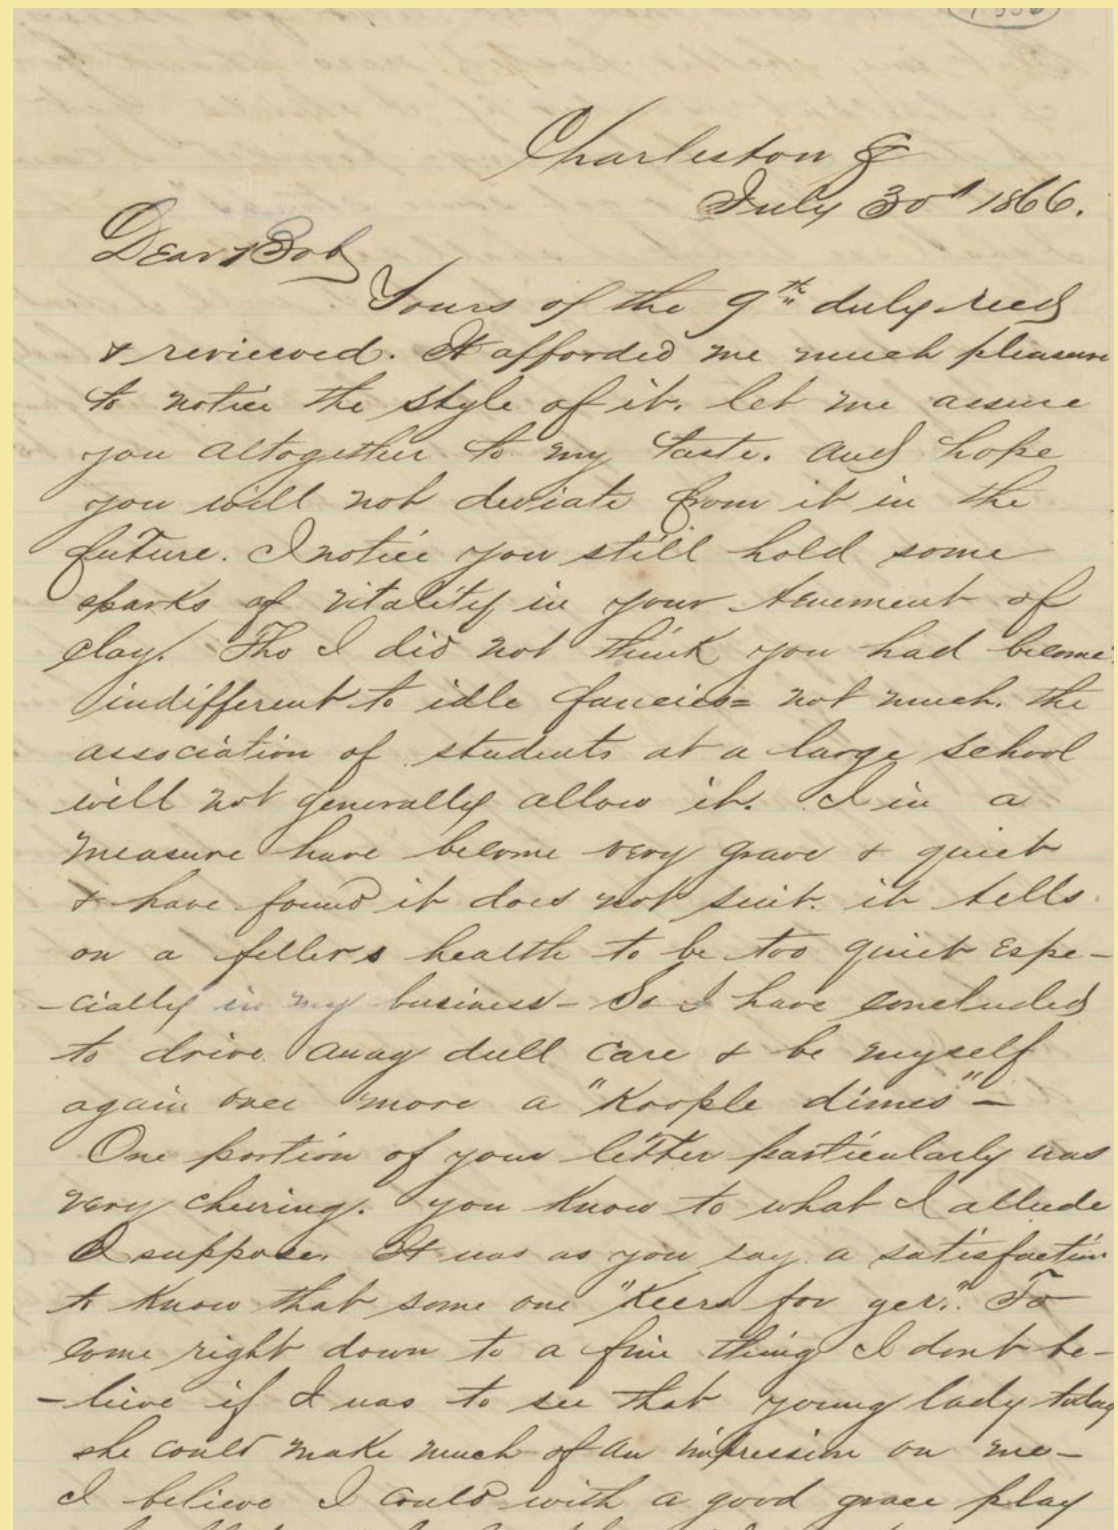 Charleston
July 30th 1866.
Dear Bob
Yours of the 9th duly recd
& reviewed. It afforded me much pleasure
to notice the style of it. let me assure
you altogether to my taste. and hope
you will not deviate from it in the
future. I notice you still hold some
sparks of vitality in your tenement of
clay. Tho I did not think you had become
indifferent to idle fancies = not much. the
association of students at a large school
will not generally allow it. I in a
measure have become very grave & quiet
& have found it does not suit. it tells
on a fellers health to be too quiet Espe-
-cially in my business - So I have concluded
to drive away dull care & be myself
again once more a "Koople dimes" -
One portion of your letter particularly was
very cheering. you know to what I allude
I suppose. It was as you say a satisfaction
to know that some one "Keers for yer." To
come right down to a fine thing I dont be-
-lieve if I was to see that young lady today
she could make much of an impression on me -
I believe I could with a good grace play